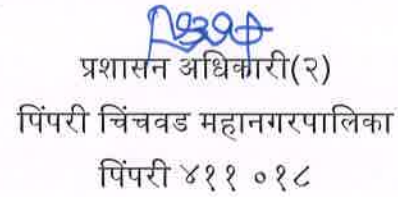 प्रशासन अधिकारी(२)
पिंपरी चिंचवड महानगरपालिका
पिंपरी ४११ ०१८